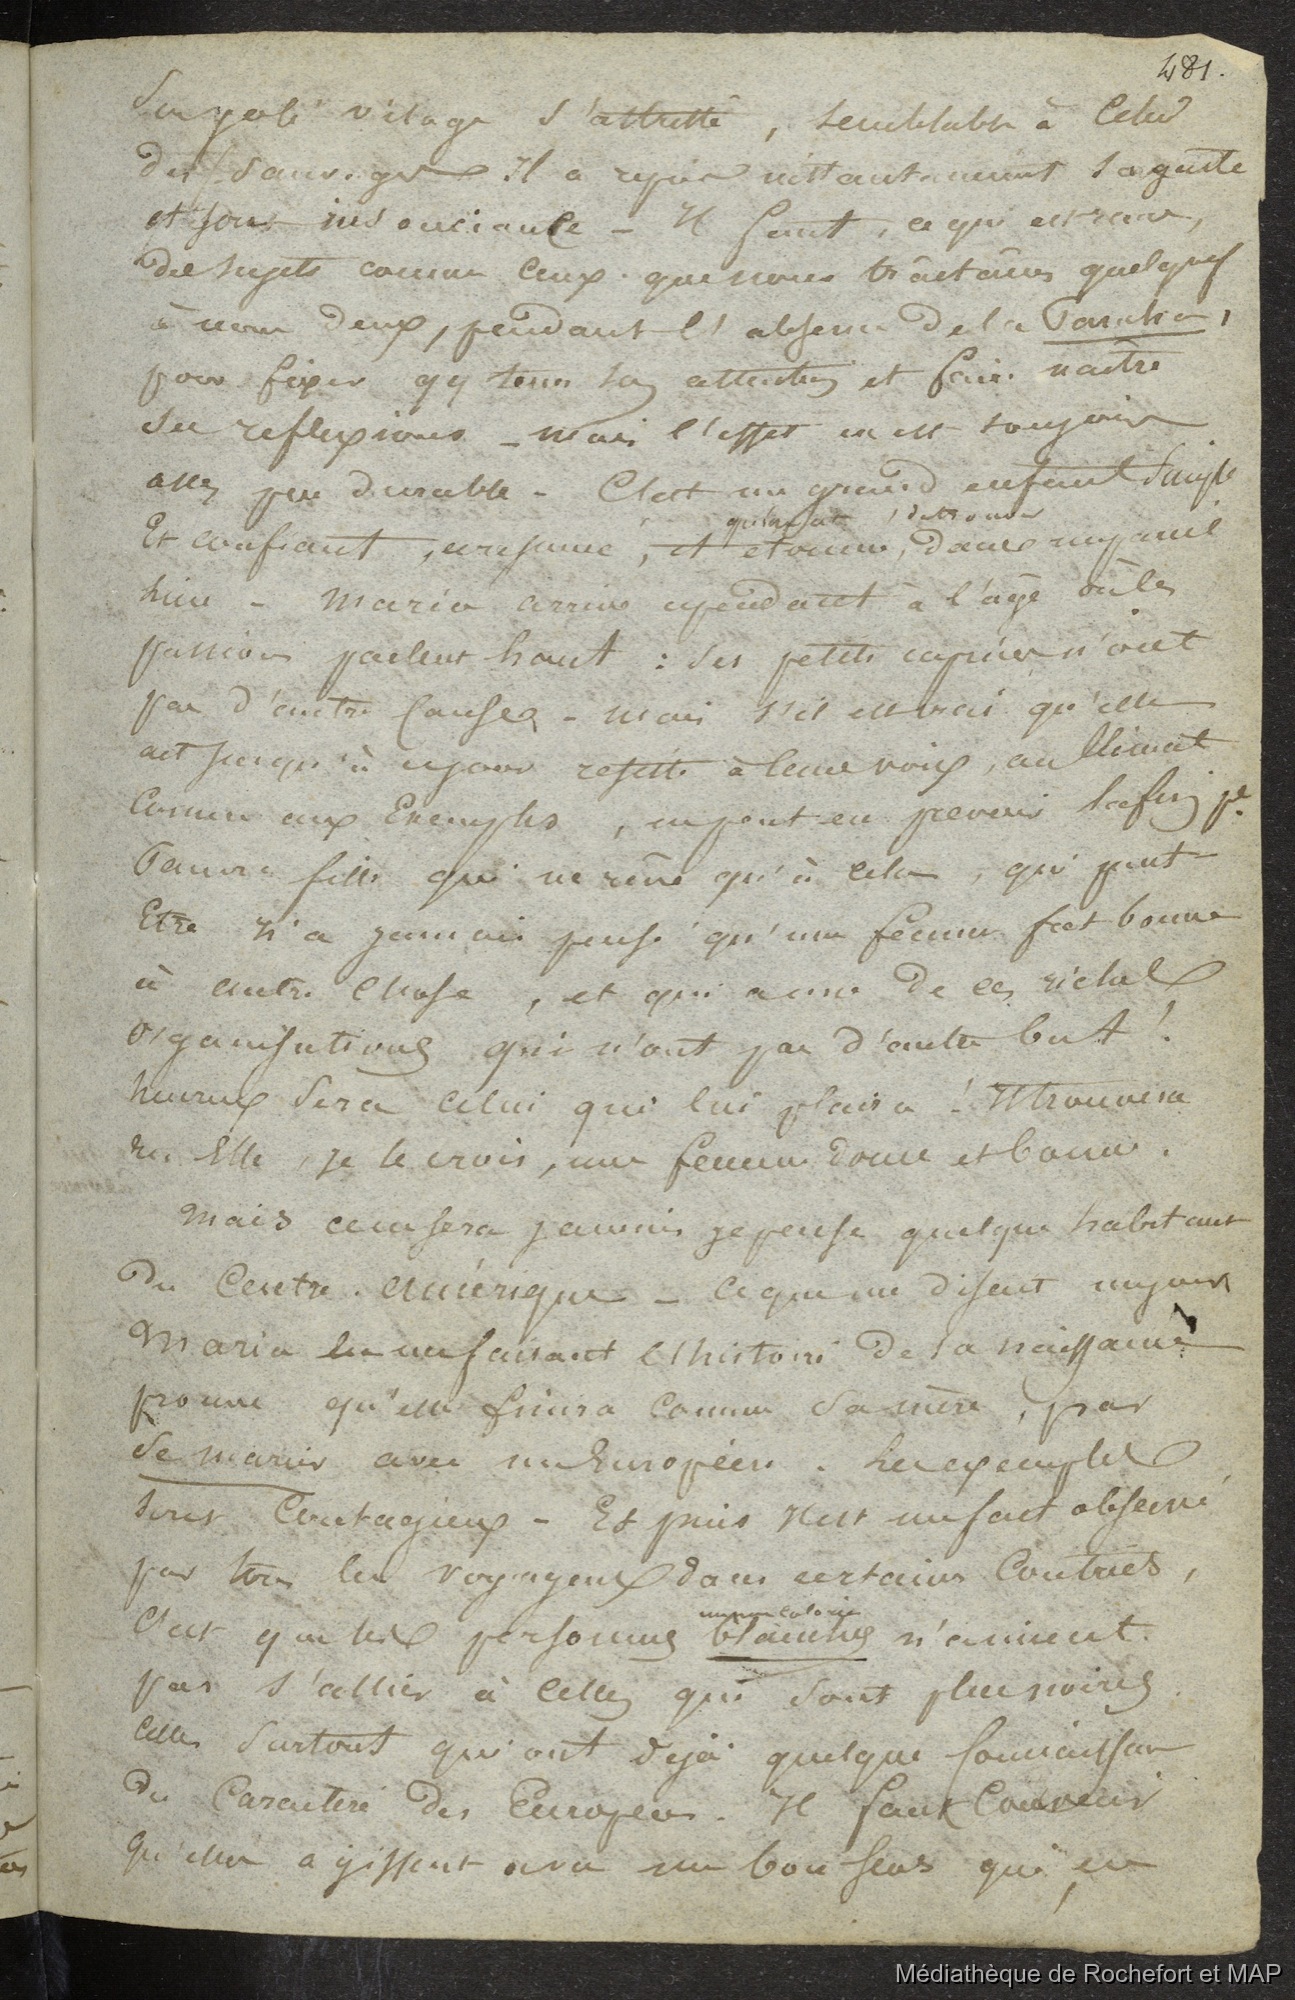 481.
Son joli visage s'attriste, semblable à celui
des sauvages Il a repris instantanément sa gaieté
et son insouciance _ Il faut, ce qui est rare,
des sujets comme ceux que nous traitâmes quelquef
à nous deux, pendant l'absence de la
pour fixer qq tems son attention et faire naître
ses reflexions _ mais l'effet en est toujours
assez peu durable - C'est un grand enfant simple
qu'on est étonné de trouver
Et confiant, en résumé, et étonné, dans un pareil
lieu - Maria arrive cependant à l'âge où les
passions parlent haut : ses petits caprices n'ont
pas d'autre cause - mais s'il est vrai qu'elle
ait jusqu'à ce jour resisté à leur voix, au climat
comme aux Exemples, on peut en prevoir la fin pr.
Pauvre fille qui ne rêve qu'à cela, qui peut
Etre n'a jamais pensé qu'une femme fut bonne
à autre chose, et qui a une de ces riches
organisations qui n'ont pas d'autre but !
heureux sera celui qui lui plaira ! Il trouvera
en Elle, je le crois, une femme douce et bonne.
Mais ce ne sera jamais je pense quelque habitant
du Centre. Amérique _ Ce que me disait un jour
Maria en me faisant l'histoire de sa naissance
prouve qu'elle finira comme sa mère, par
se marier avec un Européen. Les exemples
sont contagieux - Et puis Il est un fait observé
par tous les voyageurs dans certaines contrées,
C'est que les personnes
blanches n'aiment
pas s'allier à celles qui sont plus noires
celles surtout qui ont dejà quelque connaissance
du Caractère des Européens. Il faut convenir
qu'elles agissent avec un bon sens qui en
Médiathèque de Rochefort et MAP